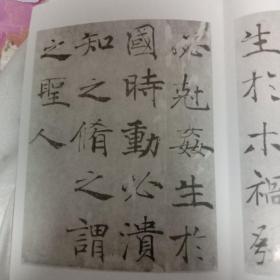 生於木禍發
必尅姦生於
國時動必潰
知之脩之謂
之聖人